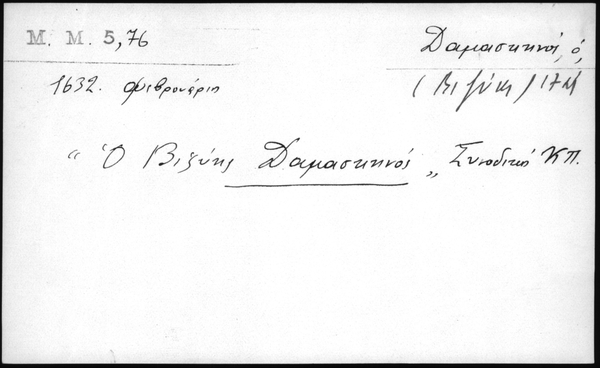 M. M. 5,76
Δαμασκηνός, ὁ,
1632. φεβρουάριο
(Βιζύης) 17ος
"Ὁ Βιζύης Δαμασκηνός„ Συνοδικό Κ.Π.